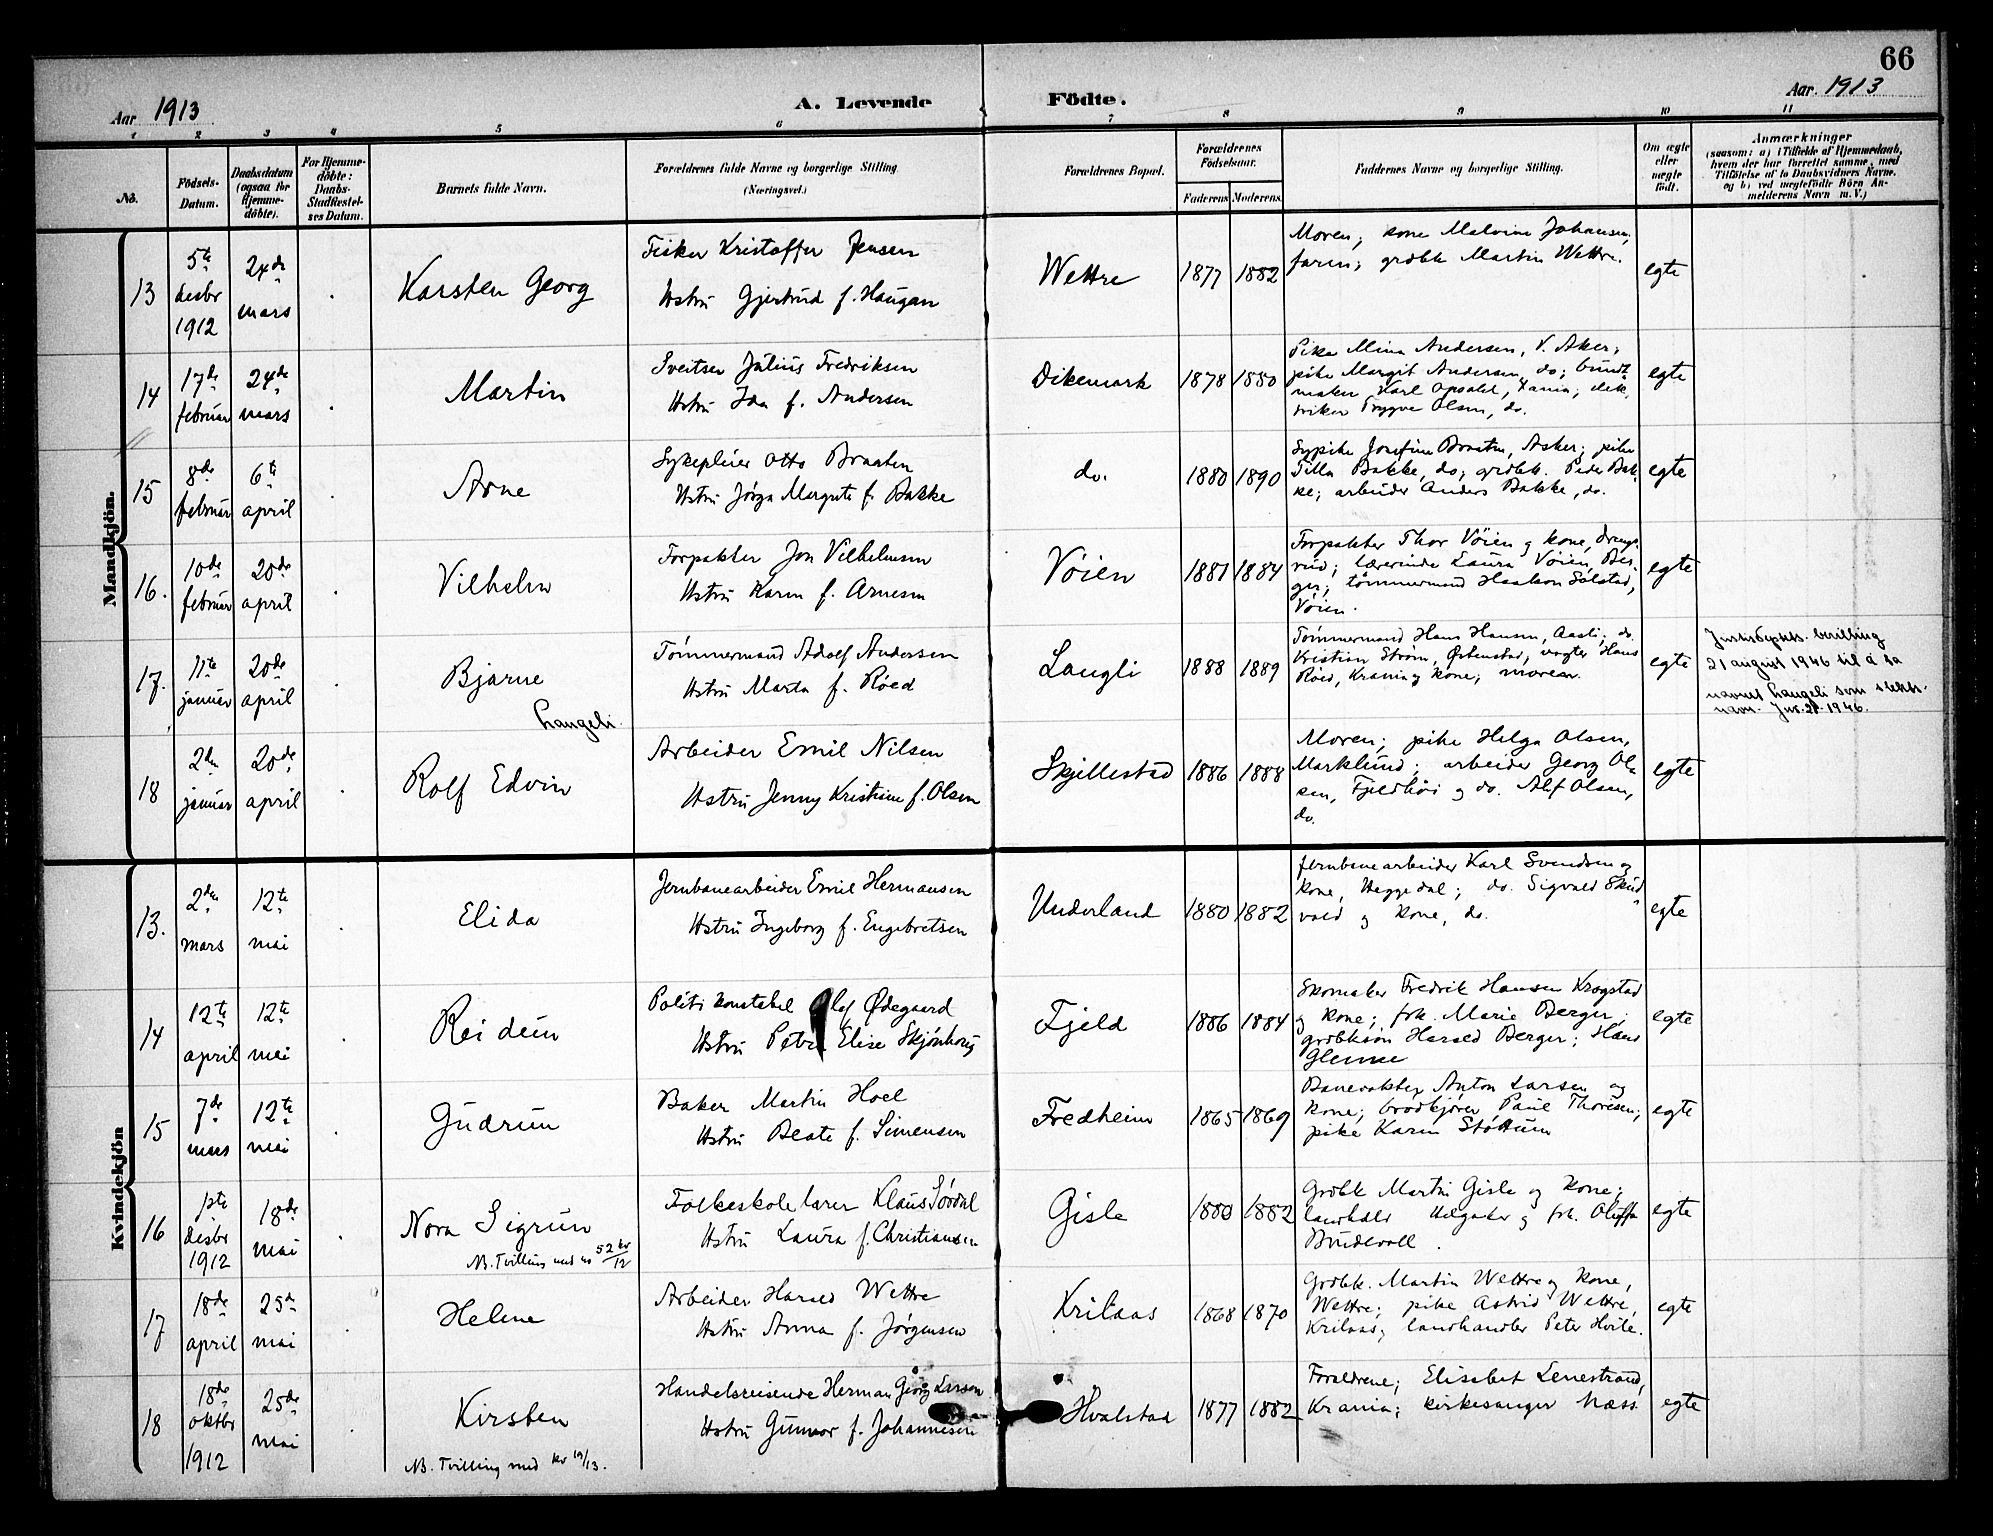 66
Aar 1913
A. Levende Födte.
Aar. 1913
1 2 3 4 5 6 7 8 9 10 11
No.
Födsels-
Datum.
Daabsdatum
(ogsaa for
Hjemme-
döbte).
For Hjemme-
döbte:
Daabs-
Stadfæstel-
ses Datum.
Barnets fulde Navn.
Forældrenes fulde Navne og borgerlige Stilling
(Næringsvei.)
Forældrenes Bopæl.
Forældrenes
Födselsaar.
Faderens Moderens.
Faddernes Navne og borgerlige Stilling.
Om ægte
eller
uægte
födt.
Anmærkninger
(saasom: a) i Tilfælde af Hjemmedaab,
hvem der har forrettet samme, med
Tilföielse af to Daabsvidners Navne.
og b) ved uægtefödte Börn An-
melderens Navn m. V.)
Mandkjön.
13
5te
desbr
1912
24de
mars
Karsten Georg
Fisker Kristoffer Jensen
Hstru Gjertrud f. Haugan
Wettre
1877 1882
Moren; kone Malvine Johansen,
faren; grdbk Martin Wettre.
egte
14
17de
februar
24de
mars
Martin
Sveitser Julius Fredriksen
Hstru Ida f. Andersen
Dikemark
1878 1880
Pike Mina Andersen, V. Aker;
pike Margit Andersen, do; bundt-
maker Karl Opsahl, Xania; elek-
triker Trygve Olsen, do.
egte
15
8de
februar
6te
april
Arne
Sykepleier Otto Braaten
Hstru Jörga Margrete f. Bakke
do.
1880 1890
Sypike Josefine Braaten, Asker; pike
Tilla Bakke, do; grdbk. Peder Bak-
ke; arbeider Anders Bakke, do.
egte
16.
10de
februar
20de
april
Vilhelm
Forpakter Jon Vilhelmsen
Hstru Karen f. Arnesen
Vöien
1881 1884
Forpakter Thor Vöien og kone,
rud; lærerinde Laura Vöien, Ber-
ger; tömmermand Haakon Solstad,
Vöien.
egte
17.
11te
januar
20de
april
Bjarne
Langeli.
Tömmermand Adolf Andersen
Hstru Marta f. Röed
Langli
1888 1889
Tömmermand Hans Hansen, Aasli; do.
Kristian Ström, Östenstad; vogter Hans
Röed, Krania og kone; moren.
egte
Justisdepts. bevilling
21 august 1946 til å ta
navnet Langeli som slekts-
navn. Jnr. 21-1946.
18
2den
januar
20de
april
Rolf Edvin
Arbeider Emil Nilsen
Hstru Jenny Kristine f. Olsen
Skjellestad
1886 1888
Moren; pike Helga Olsen,
Marklund; arbeider Georg Ol-
sen, Fjeldhöi og do. Alf Olsen,
do.
egte
Kvindekjön
13.
2den
mars
12te
mai
Elida
Jernbanearbeider Emil Hermansen
Hstru Ingeborg f. Engebretsen
Underland
1880 1882
Jernbanearbeider Karl Svendsen og
kone, Heggedal; do. Sigvald Skud-
vold og kone, do.
egte
14
12te
april
12te
mai
Reidun
Politikonstabel Olaf Ødegaard
Hstru Petra Elise Skjönhaug
Fjeld
1886 1884
Skomaker Fredrik Hansen Krogstad
og kone; frk. Marie Berger;
grdbksön Harald Berger; Hans
Glenne
egte
15
7de
mars
12te
mai
Gudrun
Baker Martin Hoel
Hstru Beate f. Simensen
Fredheim
1865 1869
Banevokter Anton Larsen og
kone; brödkjörer Paul Thoresen;
pike Karen Stöttum
egte
16
1ste
desbr
1912
18de
mai
Nora Sigrun
NB. Tvilling med no 52 kv/12
Folkeskolelærer Klaus Sördal
Hstru Laura f. Christiansen
Gisle
1880 1882
Grdbk Martin Gisle og kone;
landhdlr Helgaker og frk. Oluffa
Budevoll.
egte
17
18de
april
25de
mai
Helene
Arbeider Harald Wettre
Hstru Anna f. Jörgensen
Krilaas
1868 1870
Grdbk. Martin Wettre og kone,
Wettre; pike Astrid Wettre,
Krilaas; landhandler Peter Hvile.
egte
18
18de
oktbr
1912
25de
mai
Kirsten
NB. Tvilling med kv 19/13.
Handelsreisende Herman Georg Larsen
Hstru Gunvor f. Johannesen
Hvalstad
1877 1882
Forældrene; Elisabet Lenestrand,
Krania; kirkesanger Næss
egte